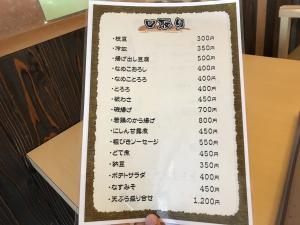 一品
・枝豆 300円
・冷奴 350円
・揚げ出し豆腐 500円
・なめこおろし 400円
・なめことろろ 400円
・とろろ 400円
・板わさ 450円
・磯揚げ 700円
・若鶏のから揚げ 800円
・にしん甘露煮 450円
・粗びきソーセージ 550円
・どて煮 450円
・納豆 350円
・ポテトサラダ 400円
・なすみそ 450円
・天ぷら盛り合せ 1,200円